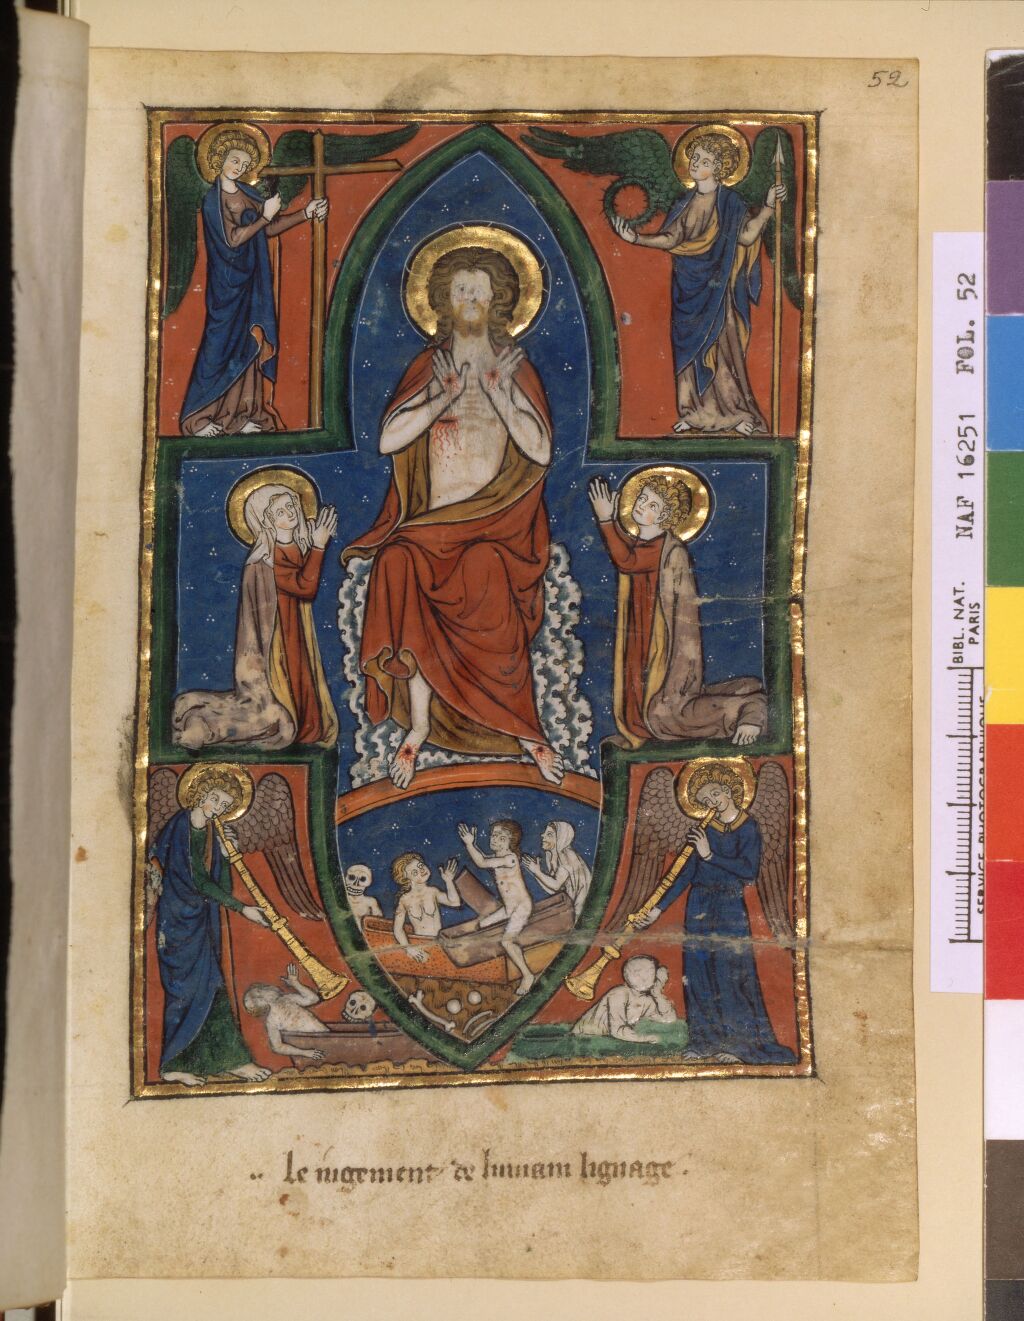 52
NAF 16251 FOL. 52
BIBL. NAT.
PARIS
SERVICE PHOTOGRAPHIQUE
·· le iugement de lumain lignage ·